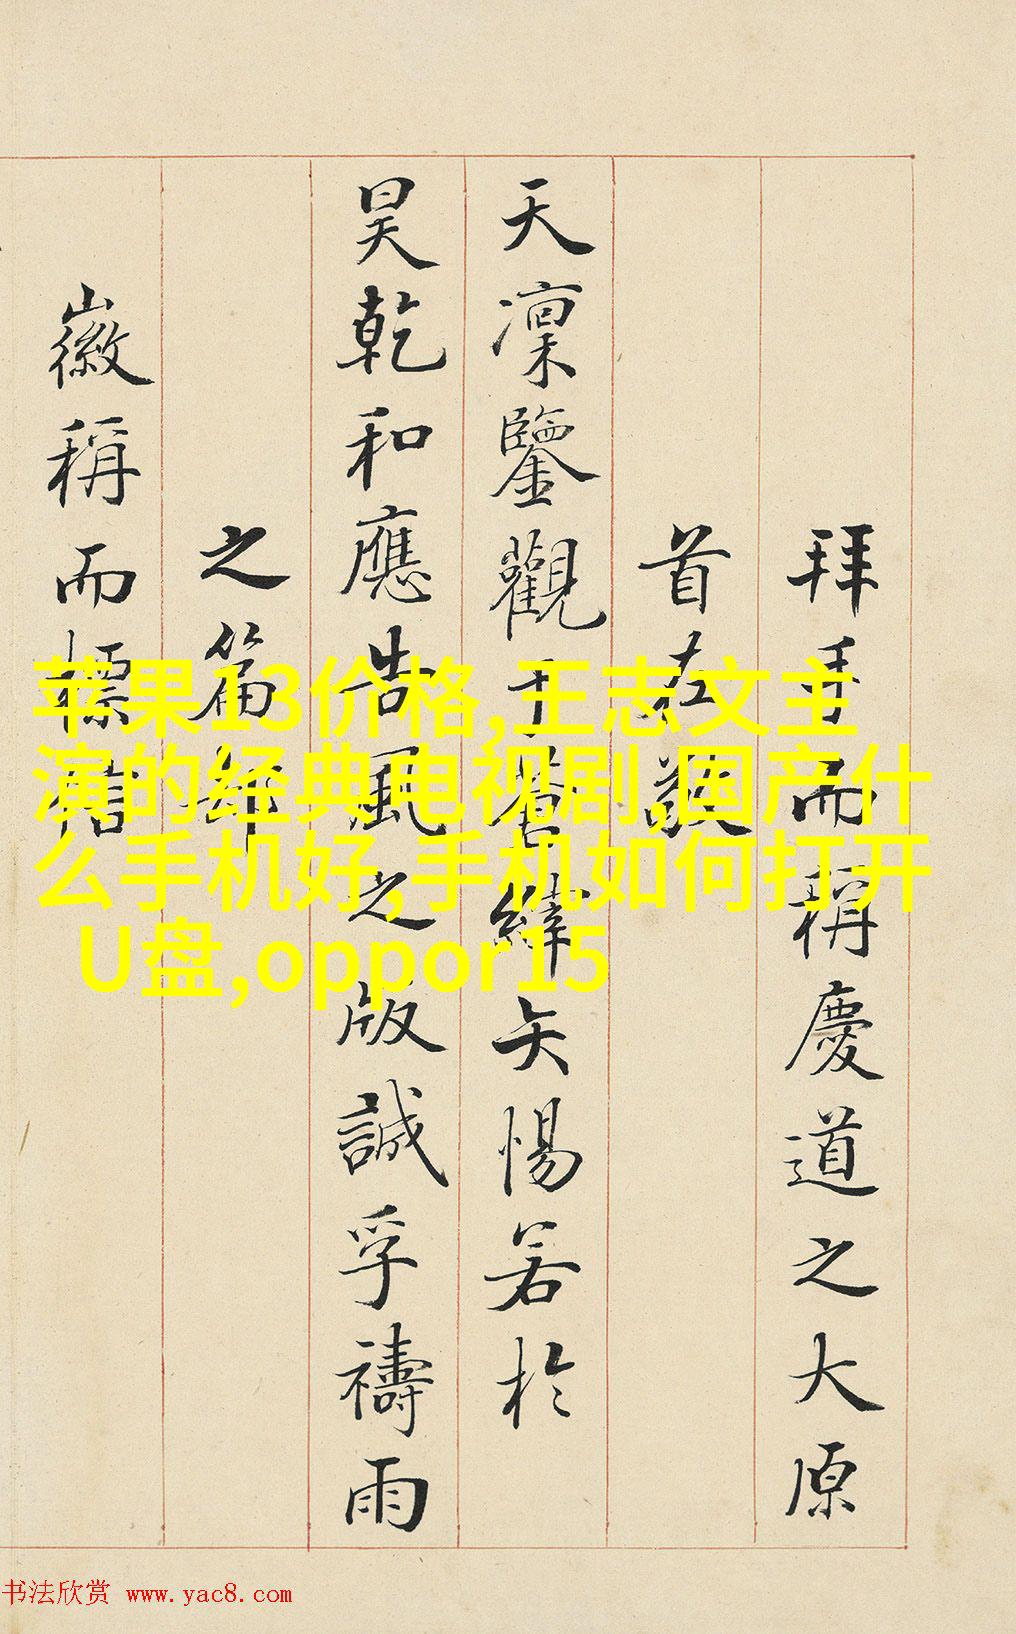 拜手而稱慶道之大原
首在敬
天凜鑒觀于緯矢惕若於
昊乾和應告風之版誠孚禱雨
之篇却
徽稱而標信
苹果13价格,王志文主
演的经典电视剧,国产什
么手机好,手机如何打开
U盘,oppor15
书法欣赏 www.yac8.com